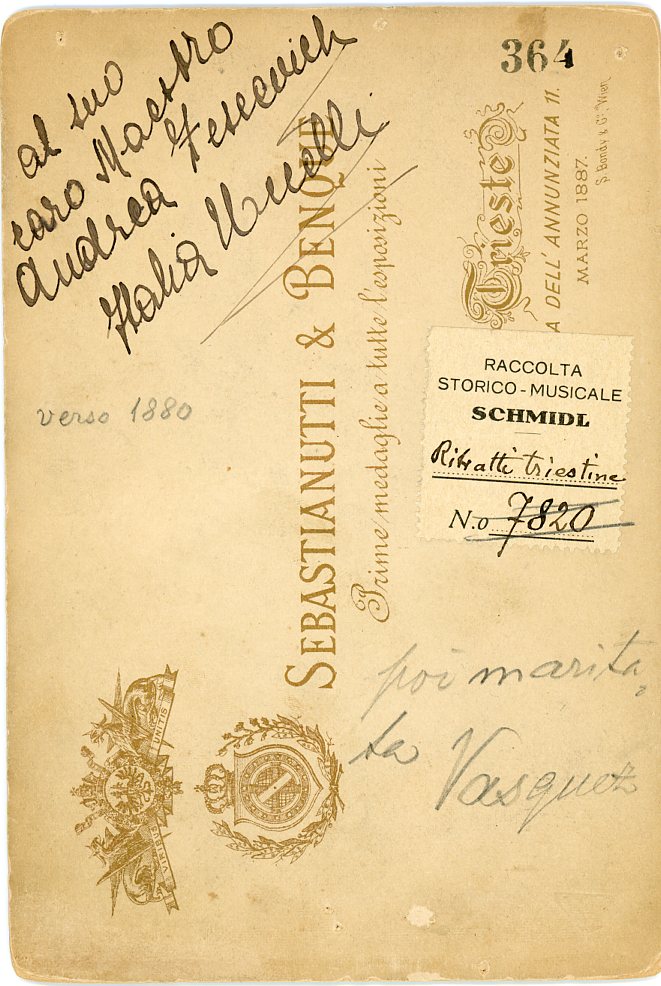 364
al suo
caro Maestro
Andrea
Italia
verso 1880
SEBASTIANUTTI & BENQUE
Prime medaglie a tutte l'esposizioni
Trieste
A DELL'ANNUNZIATA 11.
MARZO 1887.
S. Bondy k. Gr. Wien.
RACCOLTA
STORICO-MUSICALE
SCHMIDL
Ritratti triestine
N.o 7820
poi marita
ta Vasquez
UNITIS